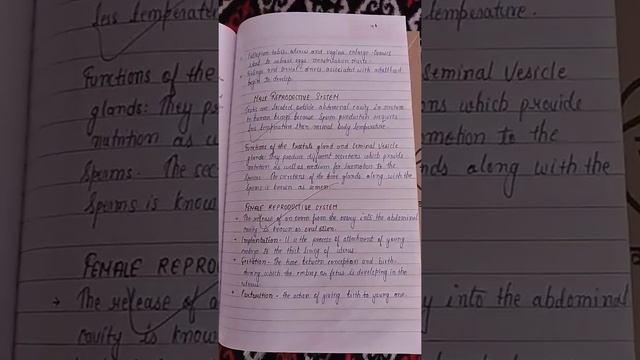 Fallopian tubes, uterus and vagina enlarge. Ovaries
start to release eggs, menstruation starts.
Feelings and sexual drives associated with adulthood
begin to develop.
MALE REPRODUCTIVE SYSTEM
Testes are located outside abdominal cavity in scrotum
in human beings because sperm production requires
less temperature than normal body temperature.
Functions of the prostate gland and seminal vesicle
glands: They produce different secretions which provide
nutrition as well as medium for locomotion to the
sperms. The secretions of the these glands along with the
sperms is known as semen.
FEMALE REPRODUCTIVE SYSTEM
The release of an ovum from the ovary into the abdominal
cavity is known as ovulation.
Implantation - It is the process of attachment of young
embryo to the thick lining of uterus.
Gestation - the time between conception and birth
during which the embryo or fetus is developing in the
uterus.
Parturition - the action of giving birth to young one.
less temperature
temperature.
Functions of the
glands: They p
nutrition as w
sperms. The sec
sperms is know
Seminal Vesicle
ns which provide
omotion to the
nds along with the
FEMALE REPRO
→ The release of a
cavity is know
y into the abdominal